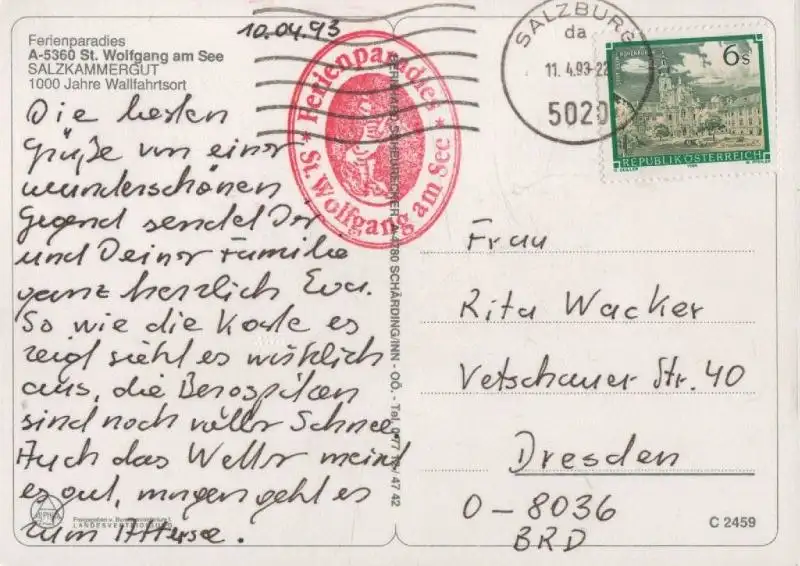 10.04.93
Ferienparadies
A-5360 St. Wolfgang am See
SALZKAMMERGUT
1000 Jahre Wallfahrtsort
Die besten
Grüße von einer
wunderschönen
Gegend sendet Dir
und Deiner Familie
ganz herzlich Eva.
So wie die Karte es
zeigt sieht es wirklich
aus, die Bergspitzen
sind noch voller Schnee
Auch das Wetter meint
es gut, morgen geht es
zum Attersee.
LANDESVERTEIDIGUNG
Ferienparadies
St. Wolfgang am See
A-4780 SCHÄRDING/INN - OÖ. - Tel.
47 42
SALZBURG
da
11.4.93-22
5020
6 S
REPUBLIK ÖSTERREICH
Frau
Rita Wacker
Vetschauer Str. 40
Dresden
O-8036
BRD
C 2459